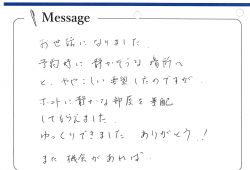 Message
お世話になりました.
予約時に静かそうな場所へ
と、ややこしい要望したのですが
ホントに静かな部屋を手配
してもらえました.
ゆっくりできました ありがとう.!
また機会があれば.